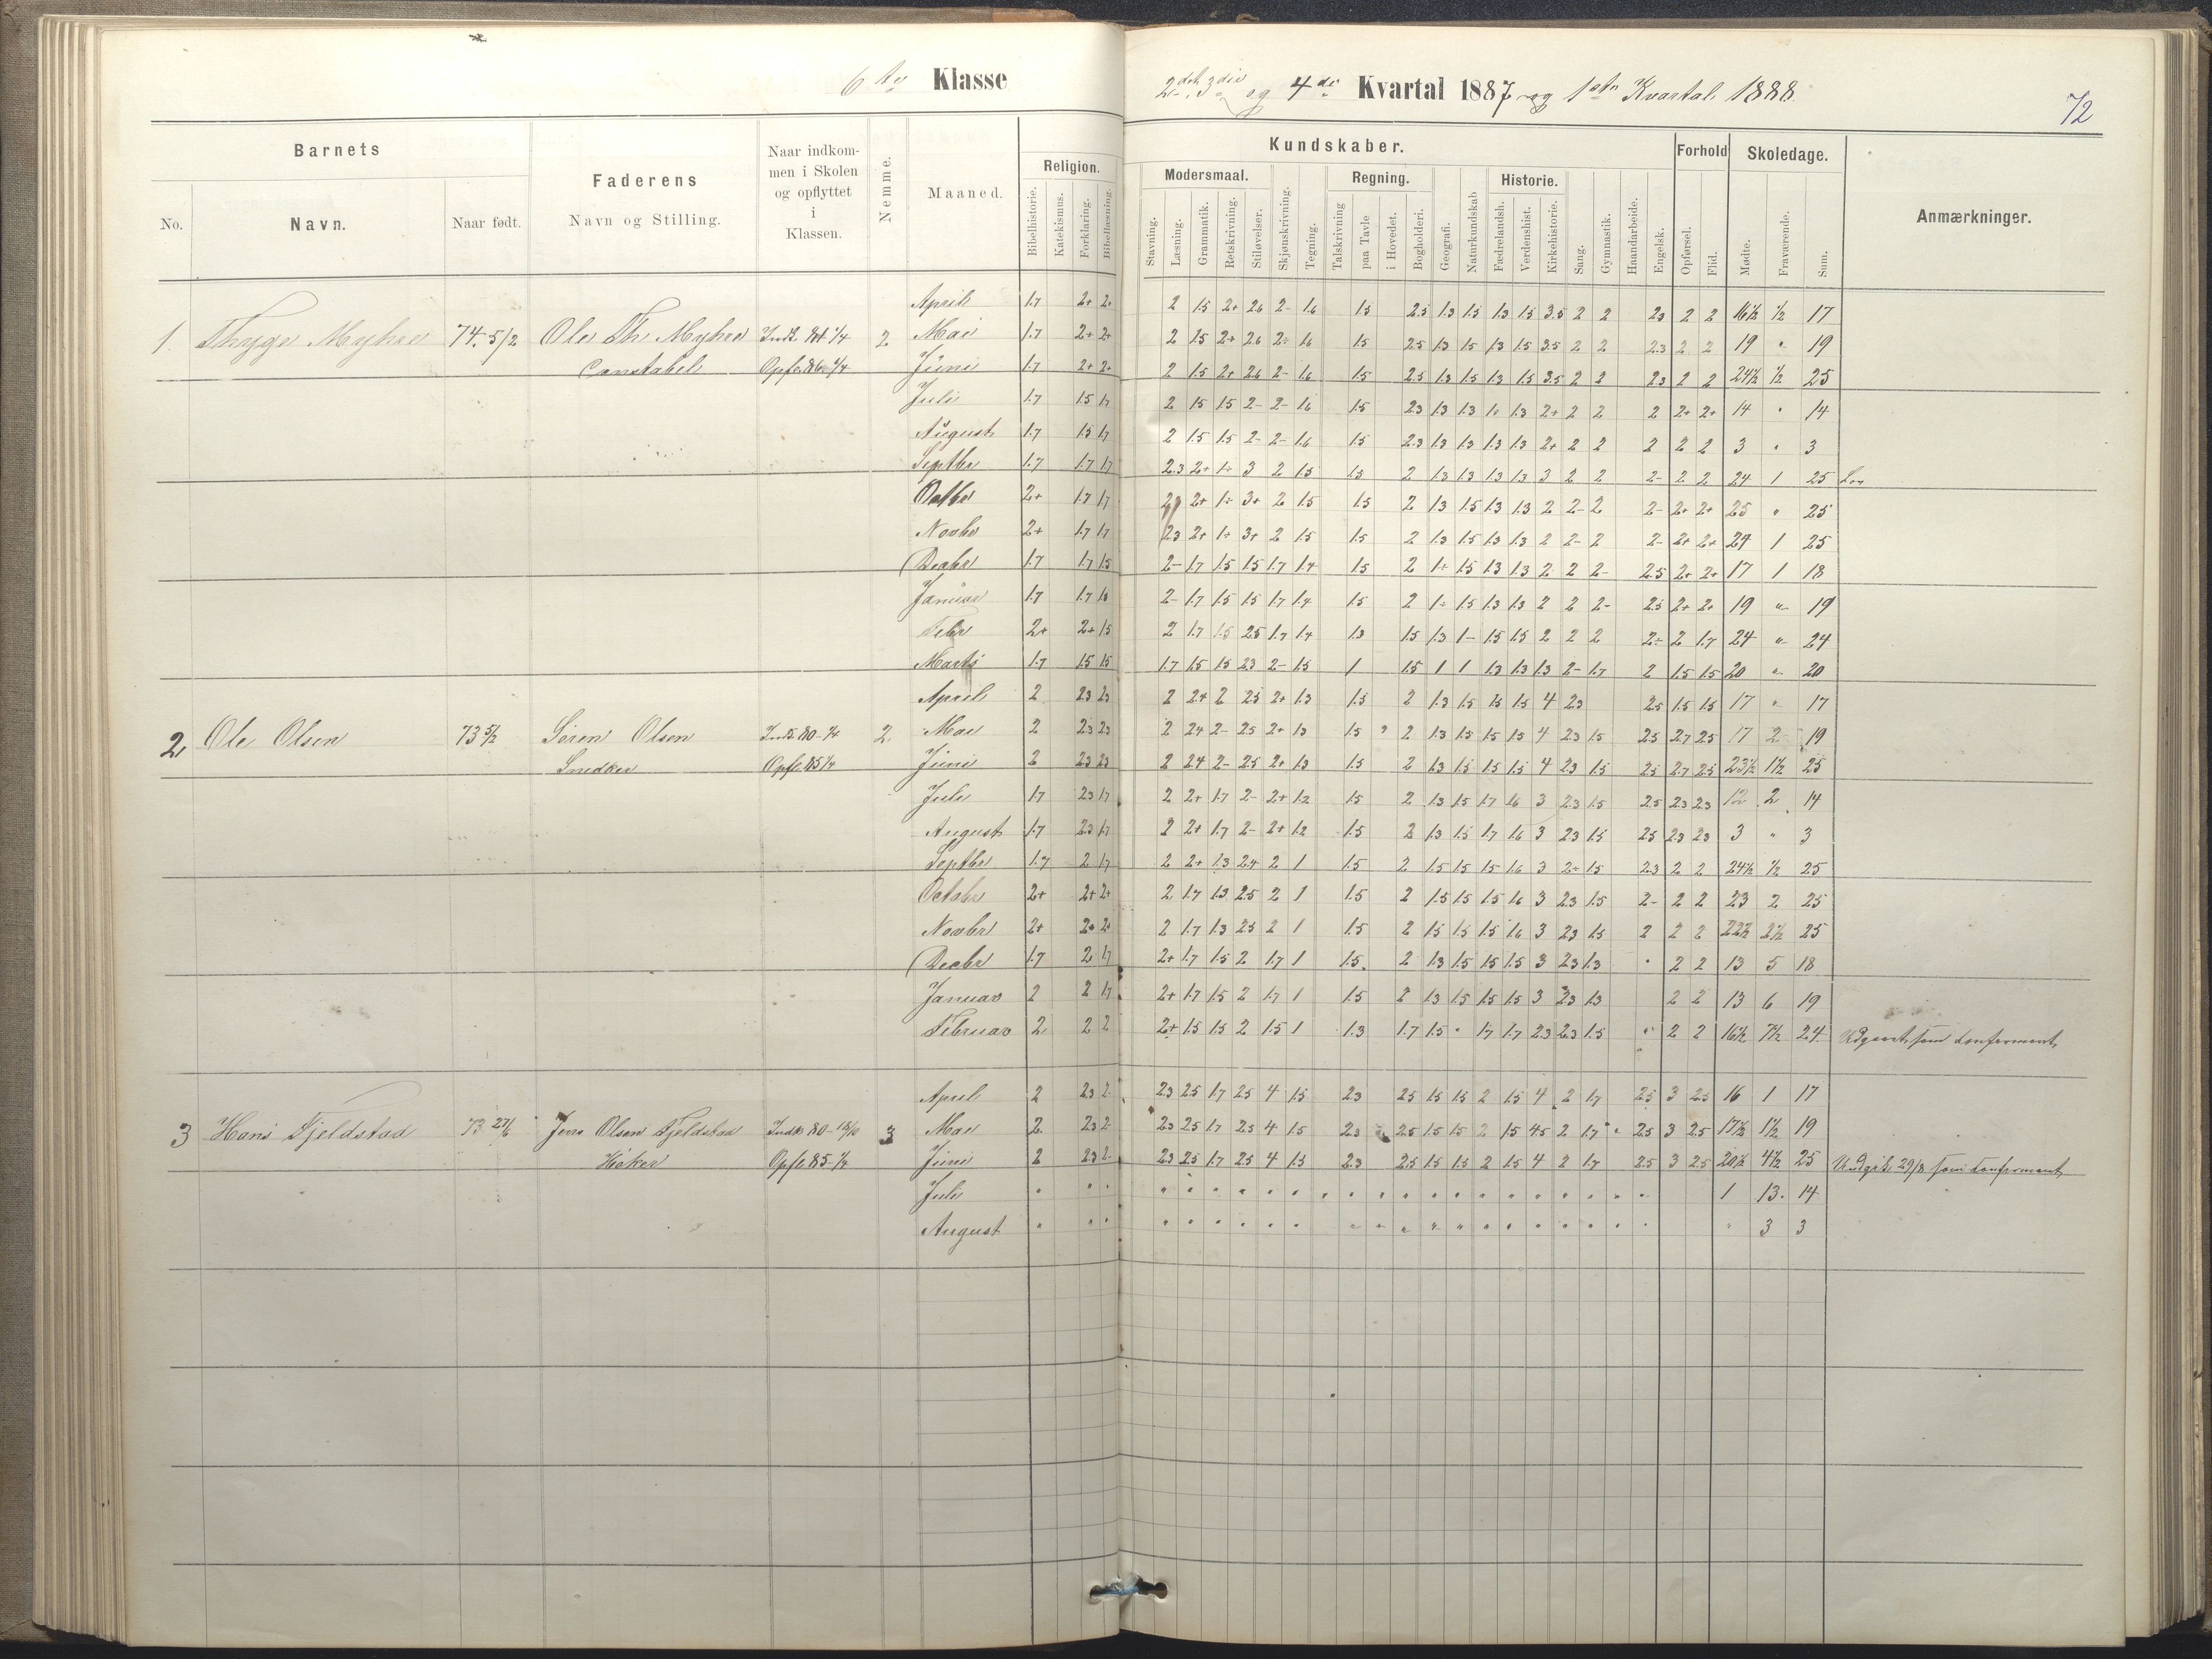 6te Klasse
2det 3die og 4de Kvartal 1887 og 1ste Kvartal 1888.
72
Barnets
No.
Navn.
Naar født.
Faderens
Navn og Stilling.
Naar indkom-
men i Skolen
og opflyttet
i
Klassen.
Nemme.
Maaned.
Kundskaber.
Religion.
Bibelhistorie.
Katekismus.
Forklaring.
Bibellæsning.
Modersmaal.
Stavning.
Læsning.
Grammatik.
Retskrivning.
Stiløvelser.
Skjønskrivning.
Tegning.
Regning.
Talskrivning
paa Tavle
i Hovedet.
Bogholderi.
Geografi.
Naturkundskab
Historie.
Fædrelandsh.
Verdenshist.
Kirkehistorie.
Sang.
Gymnastik.
Haandarbeide.
Engelsk.
Forhold
Opførsel.
Flid.
Skoledage.
Mødte.
Fraværende.
Sum.
Anmærkninger.
April 1.7 2+ 2+ 2 1.5 2+ 2.6 2- 1.6 1.5 2.5 1.3 1.5 1.3 1.5 3.5 2 2 2.3 2 2 16½ ½ 17
1. Thyge Myhre 74. 5/2 Ole Th. Myhre Indk. 81 1/4 2 Mai 1.7 2+ 2+ 2 1.5 2+ 2.6 2- 1.6 1.5 2.5 1.3 1.5 1.3 1.5 3.5 2 2 2.3 2 2 19 " 19
Constabel Opfl. 86 1/4 Juni 1.7 2+ 2+ 2 1.5 2+ 2.6 2- 1.6 1.5 2.5 1.3 1.5 1.3 1.5 3.5 2 2 2.3 2 2 24½ ½ 25
Juli 1.7 1.5 1.7 2 1.5 1.5 2- 2- 1.6 1.5 2.3 1.3 1.3 1.3 2+ 2 2 2 2+ 2+ 14 " 14
August 1.7 1.5 1.7 2 1.5 1.5 2- 2- 1.6 1.5 2.3 1.3 1.3 1.3 1.3 2+ 2 2 2 2 2 3 " 3
Septbr 1.7 1.7 1.7 2.3 2+ 1÷ 3 2 1.5 1.5 2 1.3 1.3 1.3 1.3 3 2 2 2- 2 2 24 1 25
Octbr 2+ 1.7 1.7 2+ 1÷ 3+ 2 1.5 1.5 2 1.3 1.5 1.3 1.3 2 2- 2 2- 2+ 2+ 25 " 25
Novbr 2+ 1.7 1.7 2.3 2+ 1÷ 3+ 2 1.5 1.5 2 1.3 1.5 1.3 1.3 2 2- 2 2- 2+ 2+ 24 1 25
Decbr 1.7 1.7 1.5 2- 1.7 1.5 1.5 1.7 1.4 1.5 2 1÷ 1.5 1.3 1.3 2 2 2- 2.5 2+ 2+ 17 1 18
Januar 1.7 1.7 1.6 2- 1.7 1.5 1.5 1.7 1.4 1.5 2 1÷ 1.5 1.3 1.3 2 2 2- 2.5 2+ 2+ 19 " 19
Febr 2+ 2+ 1.5 2 1.7 1.5 2.5 1.7 1.4 1.3 1.5 1.3 1- 1.5 1.5 2 2 2 2÷ 2 1.7 24 " 24
Marts 1.7 1.5 1.5 1.7 1.5 1.5 2.3 2- 1.5 1 1.5 1 1 1.3 1.3 1.3 2- 1.7 2 1.5 1.5 20 " 20
April 2 2.3 2.3 2 2.4 2 2.5 2+ 1.3 1.5 2 1.3 1.5 1.5 1.5 4 2.3 2.5 1.5 1.5 17 " 17
2. Ole Olsen 73 5/2 Søren Olsen Indk. 80-1/4 2. Mai 2 2.3 2.3 2 2.4 2- 2.5 2+ 1.3 1.5 " 2 1.3 1.5 1.5 1.5 4 2.3 1.5 2.5 2.7 2.5 17 2 19
Snedker Opfl. 85 1/4 Juni 2 2.3 2.3 2 2.4 2- 2.5 2+ 1.3 1.5 2 1.3 1.5 1.5 1.5 4 2.3 1.5 2.5 2.7 2.5 23½ 1½ 25
Juli 1.7 2.3 1.7 2 2+ 1.7 2- 2+ 1.2 1.5 2 1.3 1.5 1.7 1.6 3 2.3 1.5 2.5 2.3 2.3 12 2 14
August 1.7 2.3 1.7 2 2+ 1.7 2- 2+ 1.2 1.5 2 1.3 1.5 1.7 1.6 3 2.3 1.5 2.5 2.3 2.3 3 " 3
Septbr 1.7 2 1.7 2 2+ 1.3 2.4 2 1 1.5 2 1.5 1.5 1.5 1.6 3 2÷ 1.5 2.3 2 2 24½ ½ 25
Octobr 2+ 2+ 2+ 2 1.7 1.3 2.5 2 1 1.5 2 1.5 1.5 1.5 1.6 3 2.3 1.5 2- 2 2 23 2 25
Novbr 2+ 2+ 2+ 2 1.7 1.3 2.5 2 1 1.5 2 1.5 1.5 1.5 1.6 3 2.3 1.5 2 2 2 22½ 2½ 25
Decbr 1.7 2 1.7 2+ 1.7 1.5 2 1.7 1 1.5 2 1.3 1.5 1.5 1.5 3 2.3 1.3 " 2 2 13 5 18
Januar 2 2 1.7 2+ 1.7 1.5 2 1.7 1 1.5 2 1.3 1.5 1.5 1.5 3 2.3 1.3 2 2 13 6 19
Februar 2 2 2 2+ 1.5 1.5 2 1.5 1 1.3 1.7 1.5 " 1.7 1.7 2.3 2.3 1.5 " 2 2 16½ 7½ 24 Udgaaet som Konfirmant
April 2 2.3 2 2.3 2.5 1.7 2.5 4 1.5 2.3 2.5 1.5 1.5 2 1.5 4 2 1.7 2.5 3 2.5 16 1 17
3 Hans Fjeldstad 73 27/6 Jens Olsen Fjeldstad Indk. 80-18/10 3 Mai 2 2.3 2 2.3 2.5 1.7 2.5 4 1.5 2.3 2.5 1.5 1.5 2 1.5 4.5 2 1.7 " 2.5 3 2.5 17½ 1½ 19
Høker Opfl. 85-1/4 Juni 2 2.3 2 2.3 2.5 1.7 2.5 4 1.5 2.3 2.5 1.5 1.5 2 1.5 4 2 1.7 2.5 3 2.5 20½ 4½ 25 Undgik 29/8 som Konfirmant
Juli " " " " " " " " " " " " " " " " " " " " " " 1 13 14
August " " " " " " " " " " " " " " " " " " " " " " 3 3